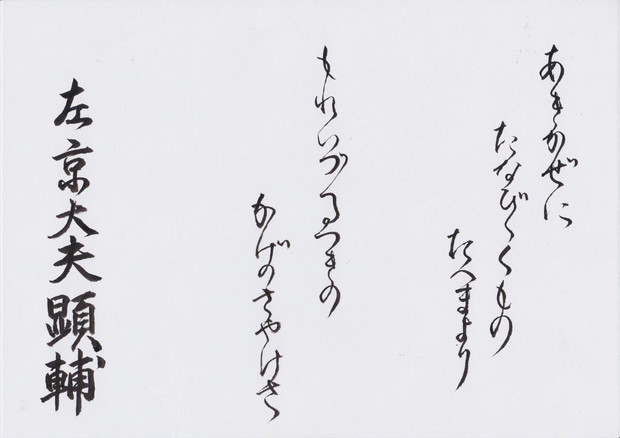 あきかぜに
たなびくくもの
たへまより
もれいづるつきの
かげのさやけさ
左京大夫顕輔